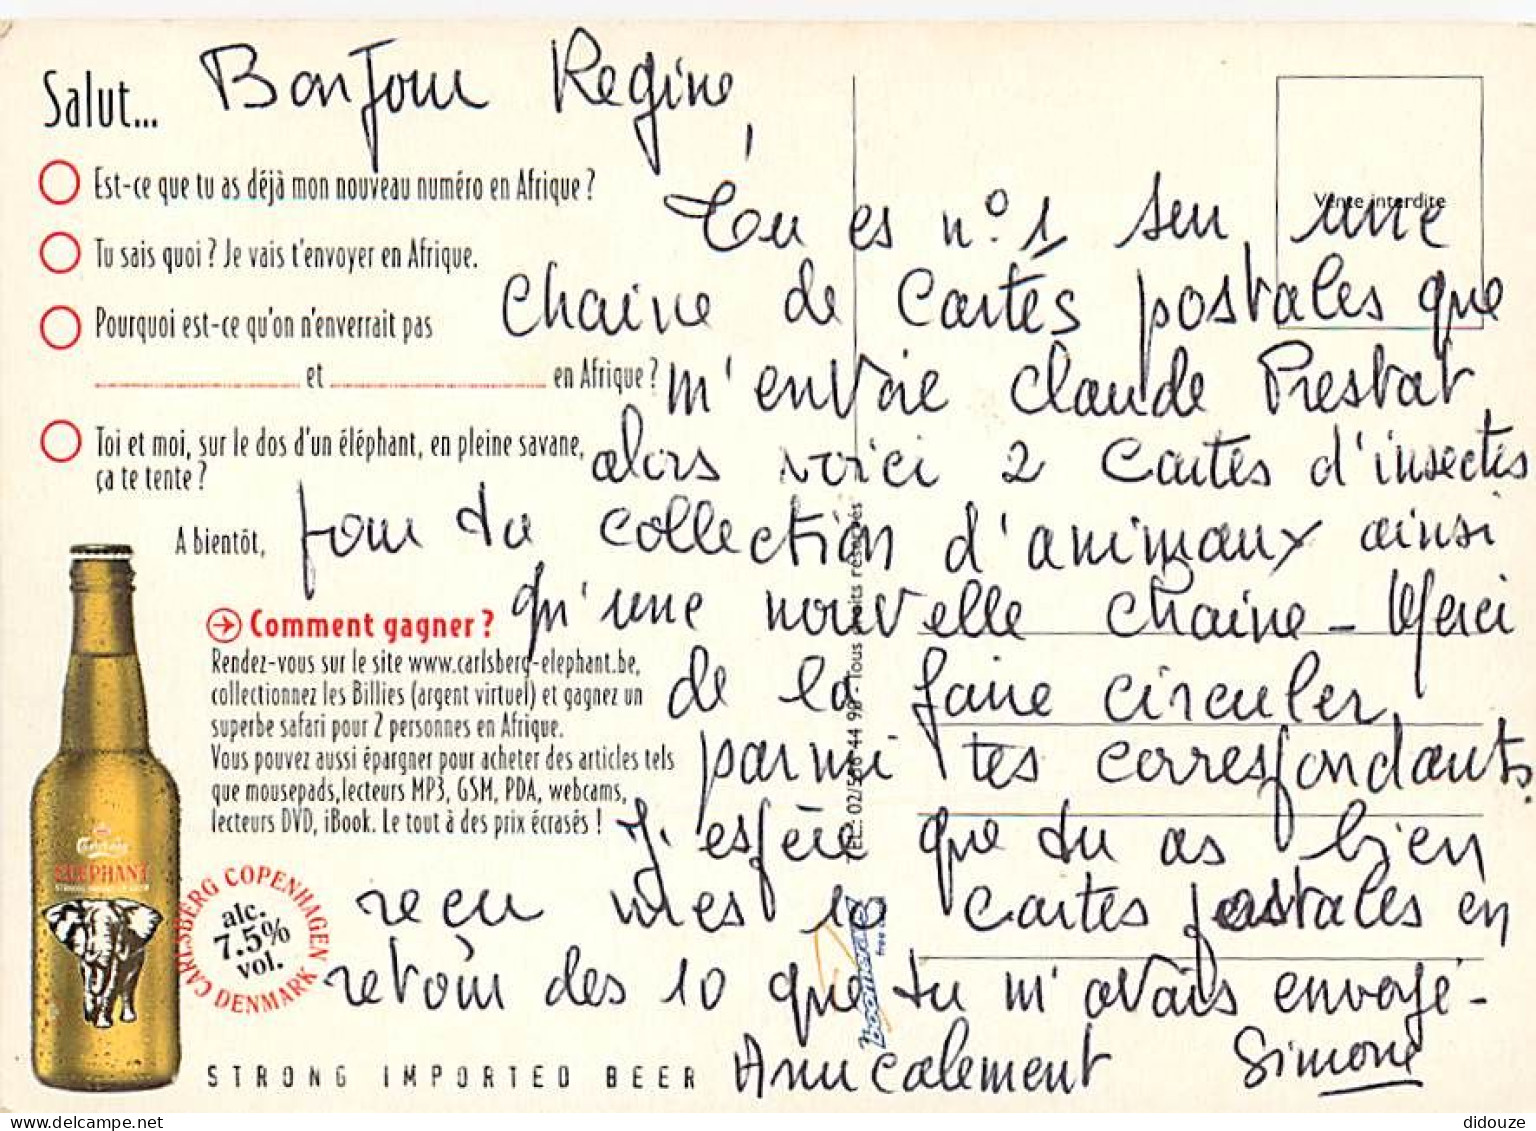 Salut... Bonjour Regine,
Est-ce que tu as déjà mon nouveau numéro en Afrique ?
Tu sais quoi ? Je vais t'envoyer en Afrique.
Pourquoi est-ce qu'on n'enverrait pas
et en Afrique ?
Toi et moi, sur le dos d'un éléphant, en pleine savane,
ça te tente ?
A bientôt,
Vente interdite
Tu es n° 1 sur une
chaine de cartes postales que
m'envoie Claude Prestat,
alors voici 2 cartes d'insectes
pour ta collection d'animaux ainsi
qu'une nouvelle chaine - Merci
de la faire circuler
parmi tes correspondants.
J'espère que tu as bien
reçu mes 10 cartes postales en
retour des 10 que tu m'avais envoyé -
Amicalement Simone
Comment gagner ?
Rendez-vous sur le site www.carlsberg-elephant.be,
collectionnez les Billies (argent virtuel) et gagnez un
superbe safari pour 2 personnes en Afrique.
Vous pouvez aussi épargner pour acheter des articles tels
que mousepads, lecteurs MP3, GSM, PDA, webcams,
lecteurs DVD, iBook. Le tout à des prix écrasés !
Carlsberg
ELEPHANT
CARLSBERG COPENHAGEN DENMARK
alc.
7.5%
vol.
STRONG IMPORTED BEER
didouze